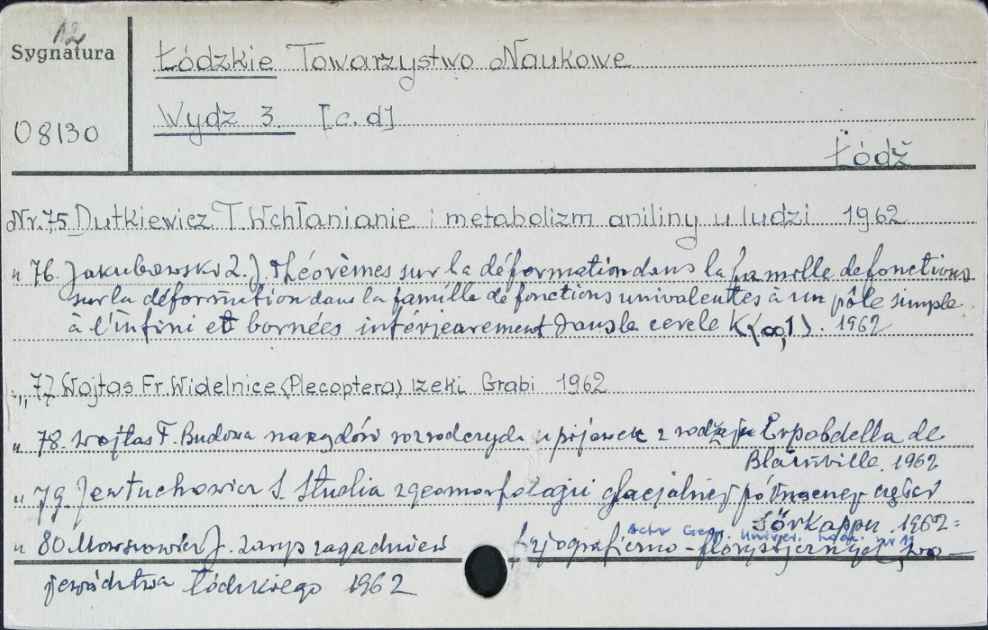 12
Sygnatura
Łódzkie Towarzystwo Naukowe
08130
Wydz 3. [c.d]
Łódź
Nr.75 Dutkiewicz T. Wchłanianie i metabolizm aniliny u ludzi 1962
" 76. Jakubowski Z. J. Théorèmes sur la déformation dans la famille de fonctions
sur la déformation dans la famille de fonctions univalentes à un pôle simple
à l'infini et bornées intérieurement dans le cercle K(∞,1). 1962
" 77 Wojtas Fr. Widelnice (Plecoptera) rzeki Grabi 1962
" 78. Wojtas F. Budowa narządów rozrodczych u pijawek z rodzaju Erpobdella de
Blainville. 1962
" 79. Jewtuchowicz S. Studia z geomorfologii glacjalnej północnej części
Sörkappu. 1962 =
Acta Geogr. Univer. Lodz. nr 11
" 80. Mowszowicz J. Zarys zagadnień fizjograficzno-florystycznych wo-
jewództwa Łódzkiego 1962